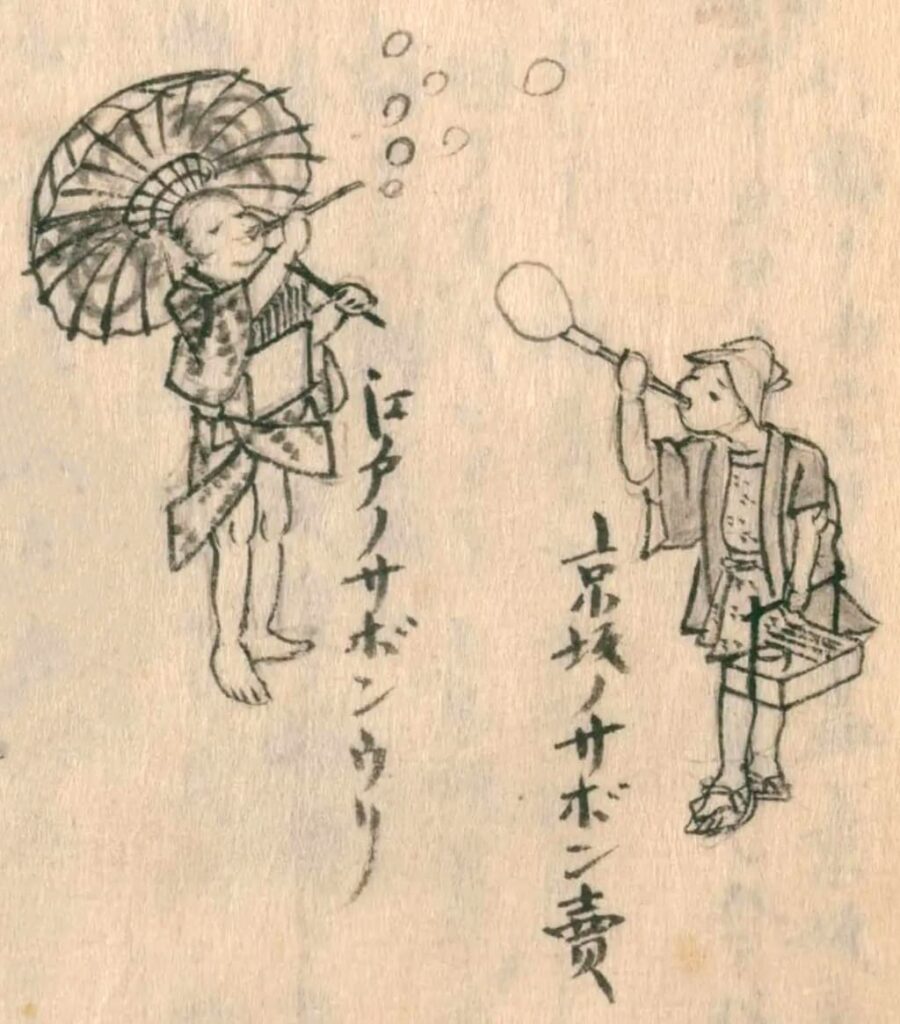 京坂ノサボン賣
江戸ノサボンウリ